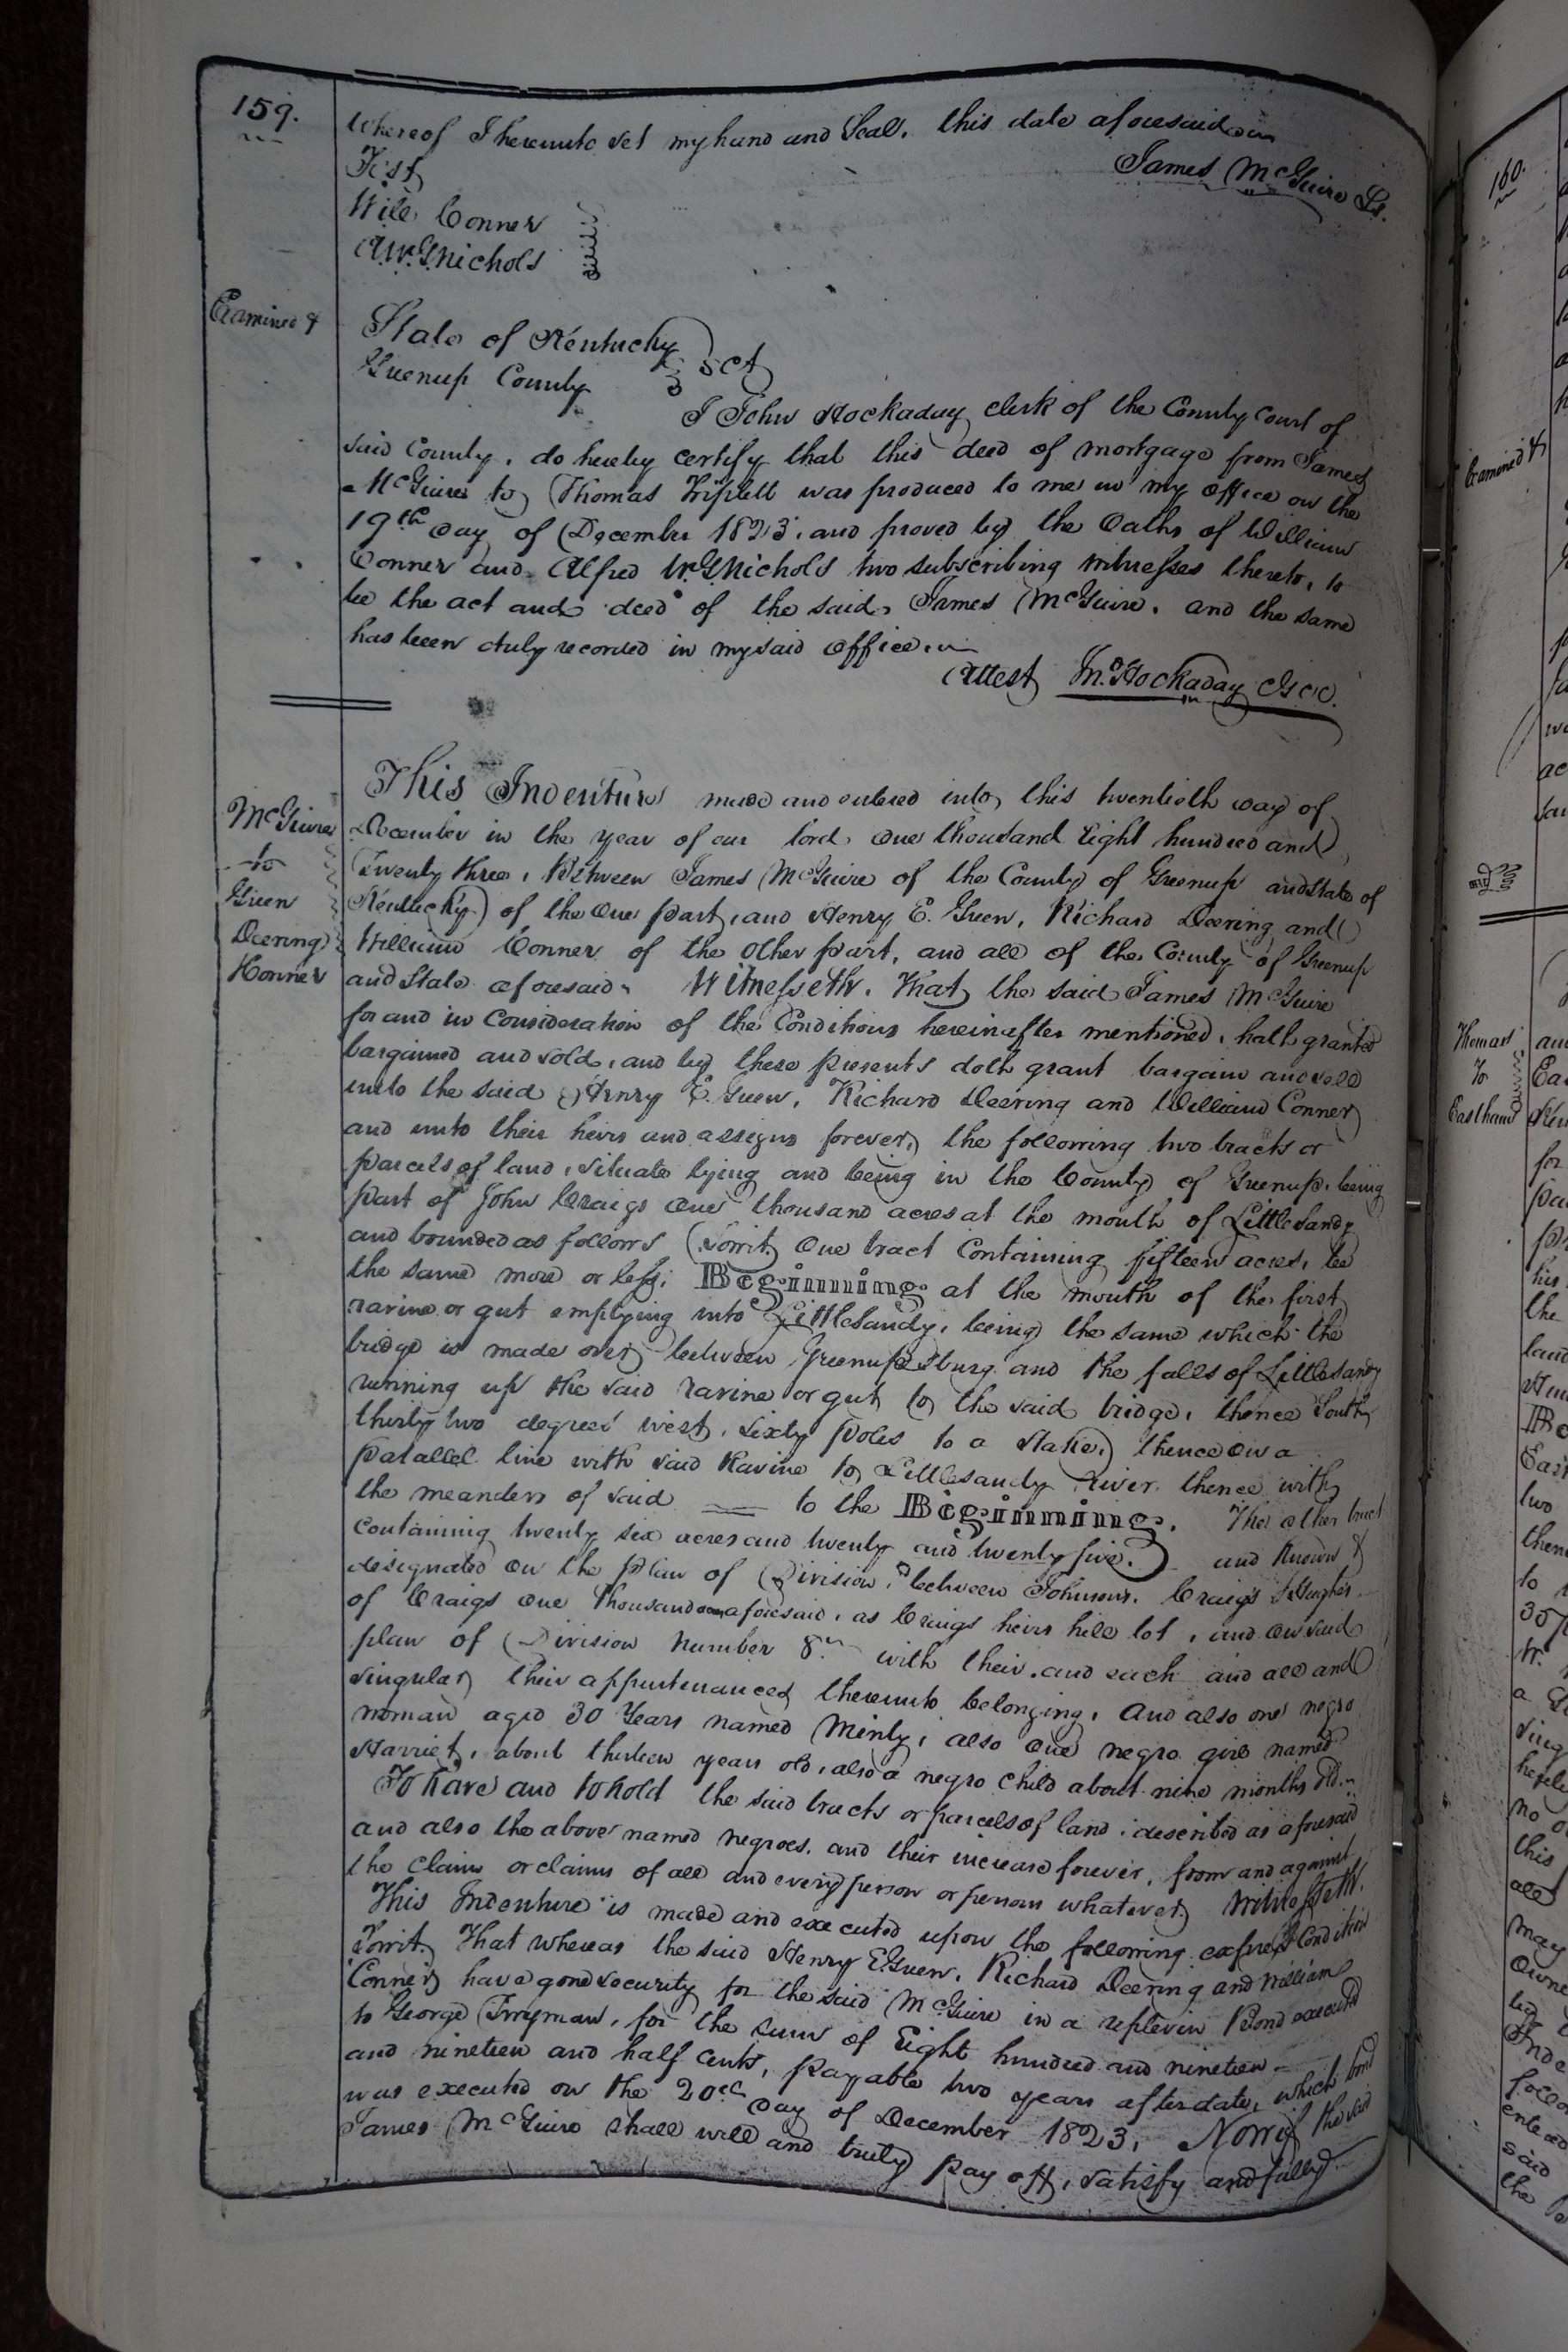 159.
Whereof I hereunto set my hand and Seal. this date aforesaid
Test
James McGuire Ls.
Will. Conner
A. W. G. Nichols
Examined &
State of Kentucky
Greenup County Sct
I John Hockaday clerk of the County Court of
said County, do hereby certify that this deed of mortgage from James
McGuire to Thomas Triplett was produced to me in my office on the
19th day of December 1823, and proved by the Oaths of William
Conner and Alfred W. G. Nichols two subscribing witnesses thereto, to
be the act and deed of the said, James McGuire. and the same
has been duly recorded in my said office.
Attest Jno. Hockaday G.C.C.
McGuire
to
Green
Deering
Konner
This Indenture made and entered into this twentieth day of
December in the year of our lord, One thousand Eight hundred and
Twenty three, Between James McGuire of the County of Greenup and State of
Kentucky of the One part, and Henry E. Green, Richard Deering and
William Conner of the Other part, and all of the County of Greenup
and State aforesaid. Witnesseth. That the said James McGuire
for and in Consideration of the Conditions hereinafter mentioned, hath granted
bargained and sold, and by these presents doth grant bargain and sell
unto the said Henry E. Green, Richard Deering and William Conner
and unto their heirs and assigns forever, the following two tracts or
parcels of land, situate lying and being in the County of Greenup, being
part of John Craigs One thousand acres at the mouth of Little Sandy
and bounded as follows (towit) One tract Containing fifteen acres, be
the same more or less; Beginning at the mouth of the first
ravine or gut emptying into Little Sandy, being the same which the
bridge is made over between Greenupsburg and the falls of Little Sandy
running up the said ravine or gut to the said bridge, thence South
thirty two degrees west, Sixty poles to a stake, thence on a
parallel line with said Ravine to Little Sandy river. thence with
the meanders of said to the Beginning. The other tract
containing twenty six acres and twenty and twenty five. and known &
designated on the plan of Division, between Johnson, Craigs &
of Craigs One Thousand aforesaid, as Craigs heirs hill lot, and on said
plan of Division Number 8. with their, and each and all and
singular their appurtenances thereunto belonging, And also one negro
woman aged 30 Years named Minty, also one negro girl named
Harriet, about thirteen years old, also a negro child about nine months old.
To have and to hold the said tracts or parcels of land, described as aforesaid
and also the above named negroes, and their increase forever, from and against
the claim or claims of all and every person or persons whatever, Witnesseth.
This Indenture is made and executed upon the following express Condition
Towit. That whereas the said Henry E. Green, Richard Deering and William
Conner have gone security for the said McGuire in a replevin Bond executed
to George for the sum of Eight hundred and nineteen
and nineteen and half cents, payable two years after date, which bond
was executed on the 20th day of December 1823, Now if the said
James McGuire shall well and truly pay off, satisfy and fully
160.
Examined &
Thomas
To
Easthand